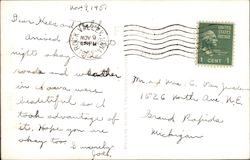 Nov 9, 1951
Dear Kees and
Arrived
night okay. The
roads and weather
in Iowa were
beautiful so I
took advantage of
it. Hope you are
okay too.
Sincerely
NOV 9
PM
UNITED STATES POSTAGE
1 CENT 1
Mr and Mrs. C. Van
1526 North Ave. N.E.
Grand Rapids
Michigan